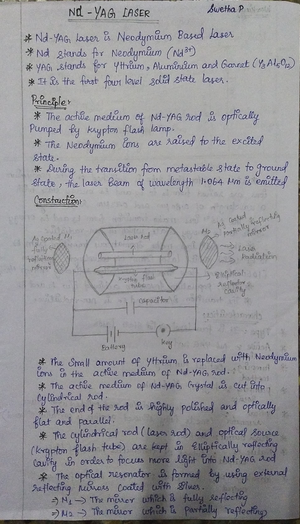 Nd-YAG LASER
Swetha P
* Nd-YAG Laser is Neodymium Based Laser
* Nd stands for Neodymium (Nd³⁺)
* YAG stands for Yttrium, Aluminium and Garnet (Y₃Al₅O₁₂)
* It is the first four level solid state laser.
Principle:
* The active medium of Nd-YAG rod is optically
Pumped by krypton flash lamp.
* The Neodymium Ions are raised to the excited
state.
* During the transition from metastable state to ground
state, the laser Beam of wavelength 1.064 μm is emitted
Construction:
M₁
Ag coated
fully
reflecting
mirror
Laser Rod
krypton flash
tube
M₂
Ag coated
partially reflecting
mirror
Laser
Radiation
Elliptical
reflective
cavity
capacitor
Battery
key
* The Small amount of Yttrium is replaced with Neodymium
Ions in the active medium of Nd-YAG rod.
* The active medium of Nd-YAG Crystal is cut into
cylindrical rod.
* The end of the rod is highly polished and optically
flat and parallel.
* The cylindrical rod (laser rod) and optical source
(krypton flash tube) are kept in Elliptically reflecting
cavity in order to focus more light into Nd-YAG rod
* The optical resonator is formed by using external
reflecting mirrors coated with silver.
⇒ M₁ → The mirror which is fully reflecting
⇒ M₂ → The mirror which is partially reflecting